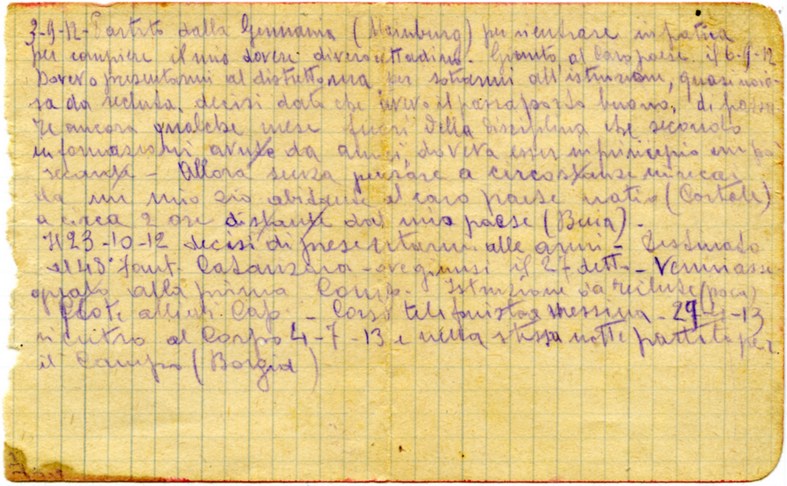 3-9-12- Partito dalla Germania (Nürnburg) per rientrare in patria
per compiere il mio dovere di vero cittadino - Giunto al caro paese il 6-9-12
Dovevo presentarmi al distretto ma per sotrarmi all'istruzione, quasi noio-
sa da recluta, decisi dato che avevo il passaporto buono, di passa-
re ancora qualche mese fuori della disciplina che secondo
informazioni avute da amici, doveva esser in principio
seccante - Allora senza pensare a circostanze mi recai
da un mio zio abitante al caro paese nativo (Cortale)
a circa 2 ore distante dal mio paese (Buia) -
Il 23-10-12 decisi di presentarmi alle armi - Destinato
al 48° fant. Catanzaro - ove giunsi il 27 detto - Venni asse-
gnato alla prima Comp. - Istruzione da recluta (poca)
Plot. allievi Cap. - Corso telefonista Messina - 29- -13
rientro al Corpo 4-7-13 e nella stessa notte partito per
il Campo (Borgia)